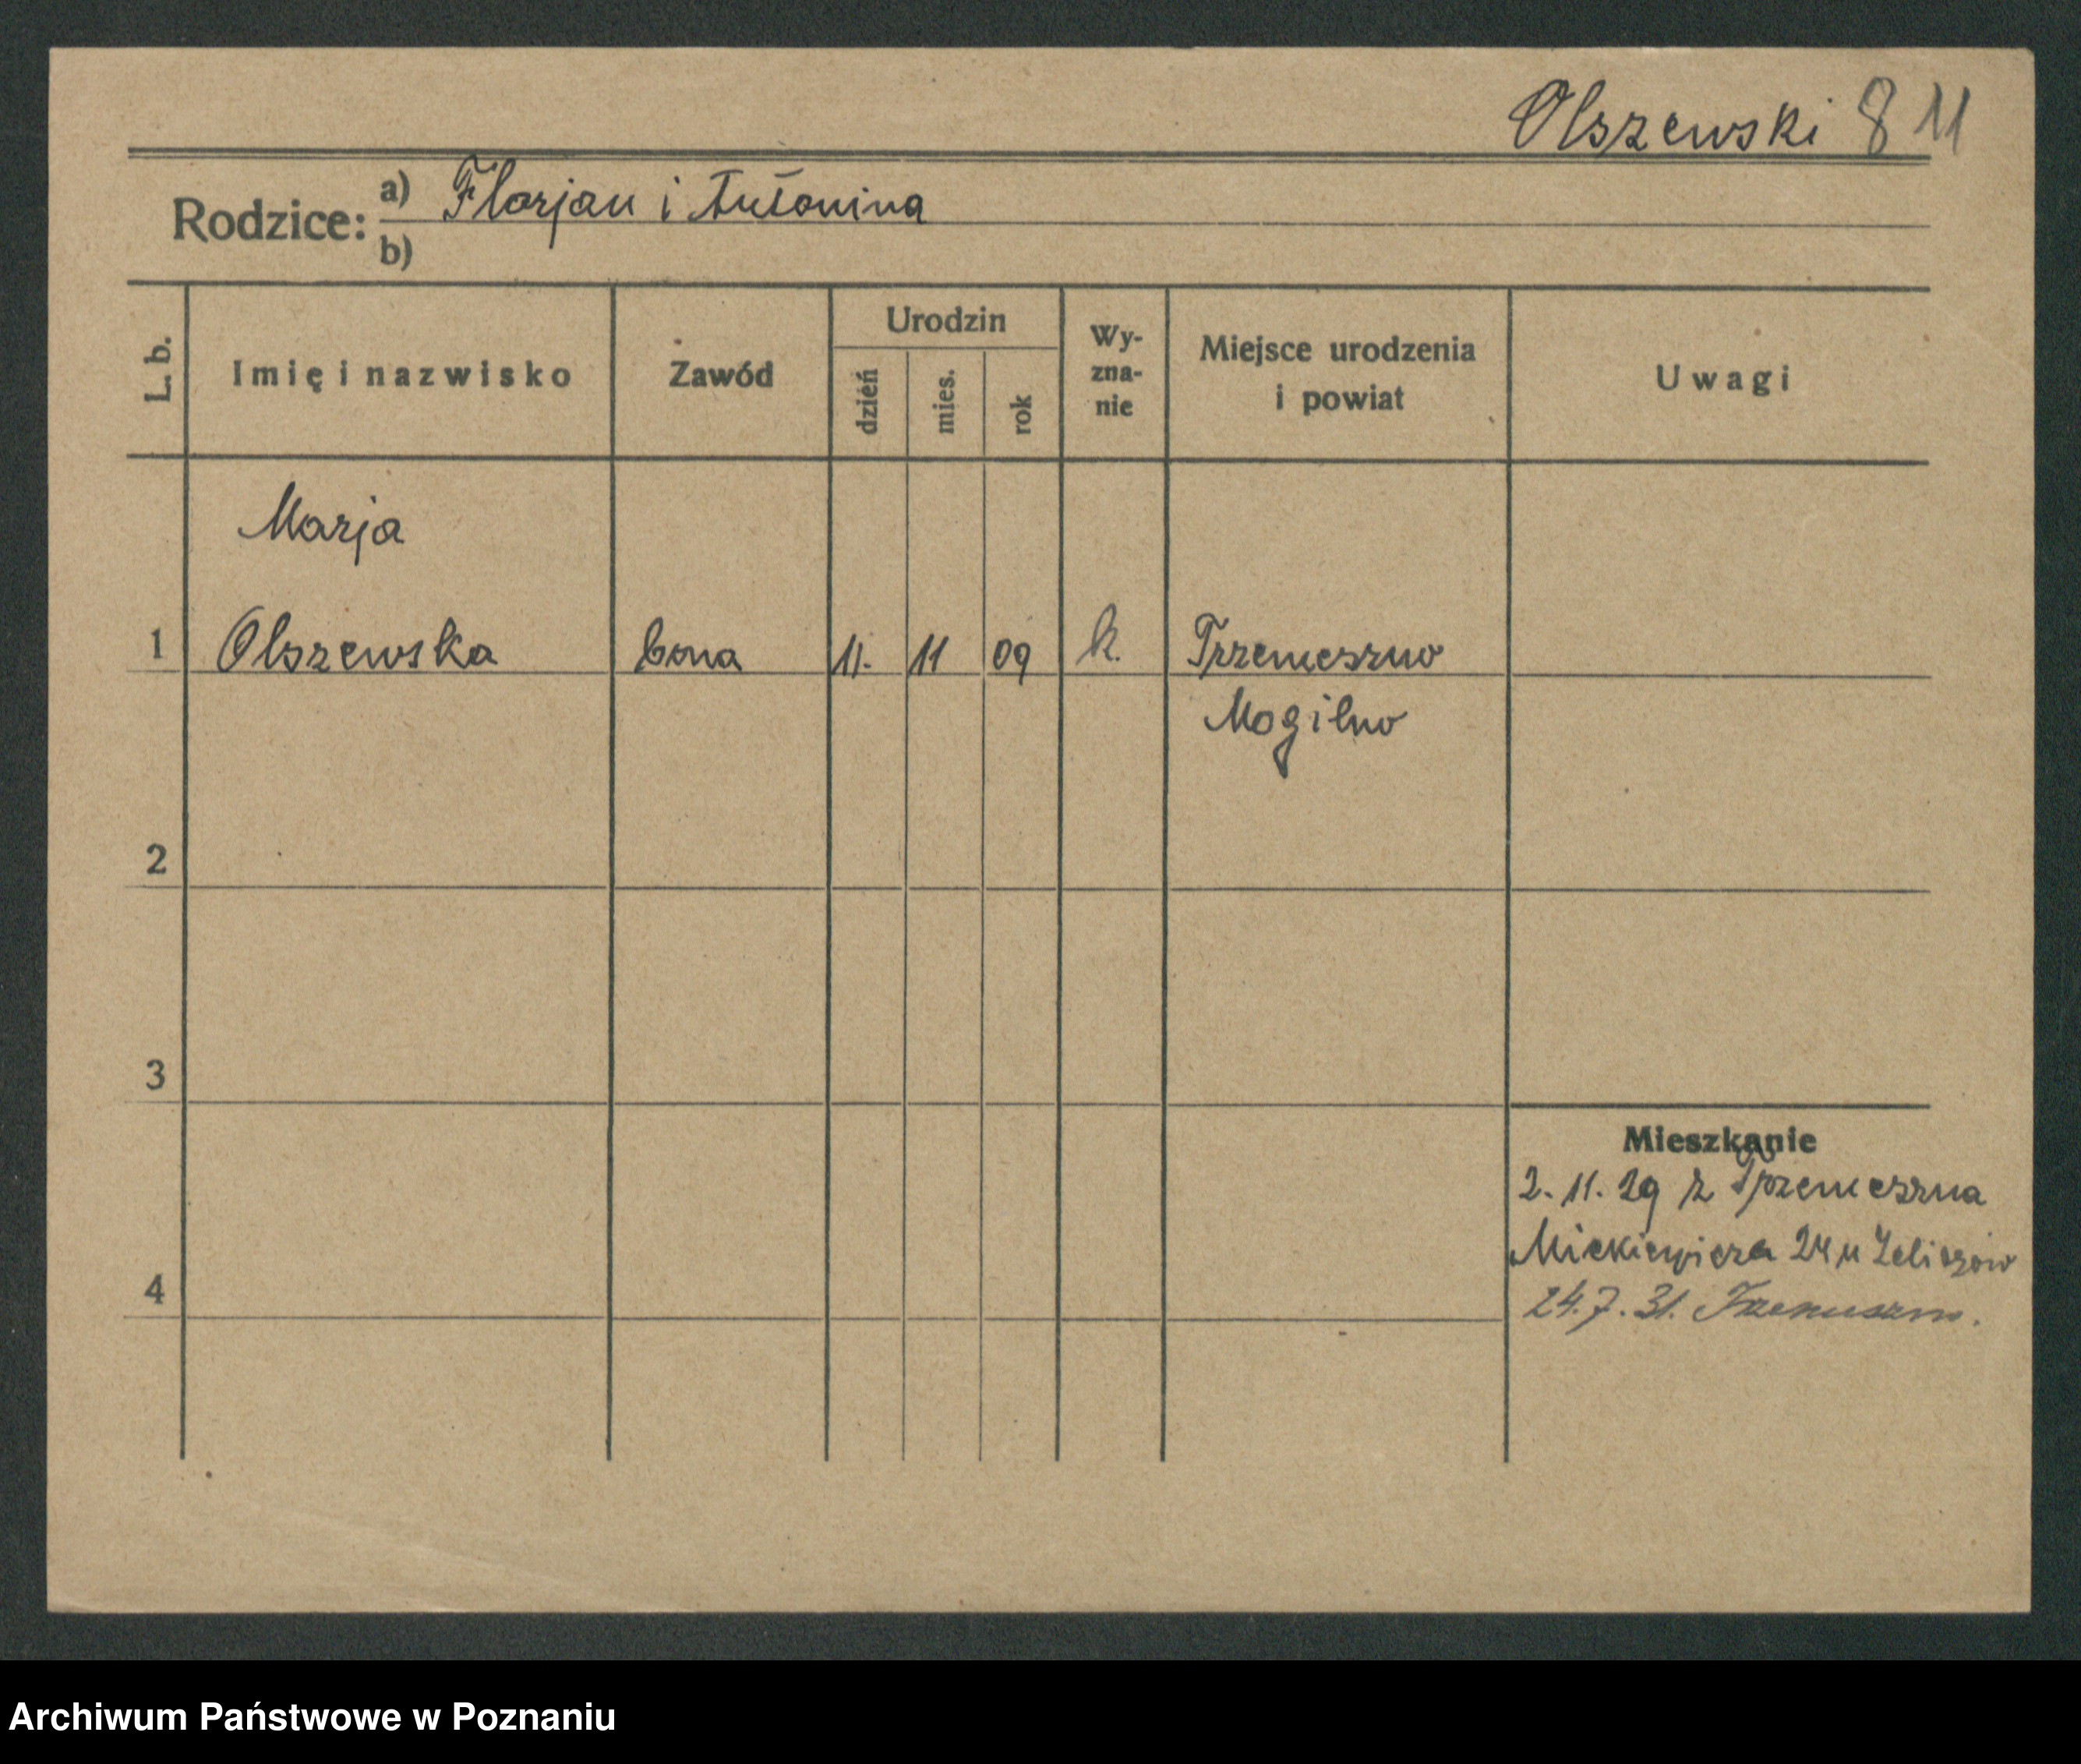 Olszewski 8 11
Rodzice: a) Florjan i Antonina
b)
L. b. Imię i nazwisko Zawód Urodzin dzień mies. rok Wy-zna-nie Miejsce urodzenia i powiat Uwagi
Marja
1 Olszewska bona 11. 11 09 k. Trzemeszno
Mogilno
2
3
Mieszkanie
2. 11. 29 z Trzemeszna
Mickiewicza 24 u
4 24. 7. 31. Trzemeszno.
Archiwum Państwowe w Poznaniu